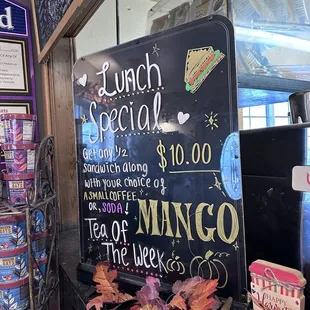 Lunch
Special
Get any 1/2
sandwich along
with your choice of
A SMALL COFFEE
OR, SODA!
$10.00
Tea Of
The Week
MANGO
Happy
Harvest